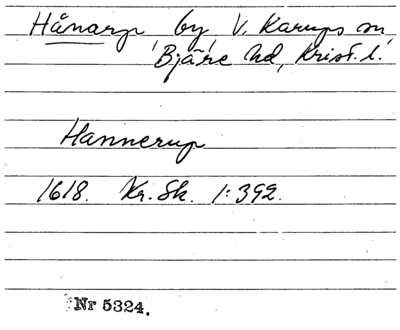 Hånarp, by, V. Karups sn,
Bjäre hd, Krist. l.
Hannerup
1618. Kr. Sk. 1:392.
Nr 5324.